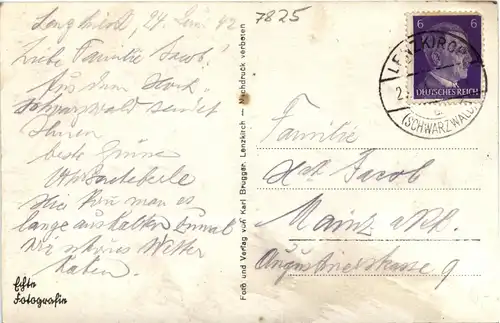 Lenzkirch, 24. Juni 42
7825
Liebe Familie Jacob!
Aus dem Hoch-
schwarzwald sendet
Ihnen
beste Grüsse
Hier kann man es
lange aushalten zumal
wir schönes Wetter
haben.
Echte
Fotografie
Foto und Verlag von Karl Brugger, Lenzkirch — Nachdruck verboten
6 6
DEUTSCHES REICH
LENZKIRCH
(SCHWARZWALD)
Familie
Jacob
Mainz a/Rh.
Augustinerstrasse 9